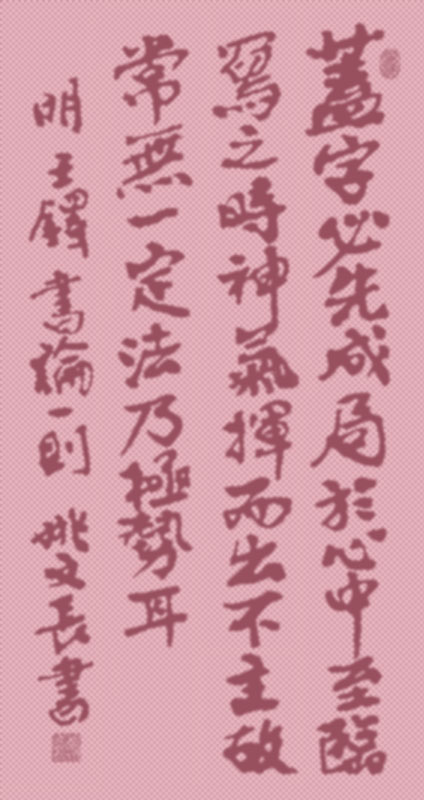 蓋字必先成局於心中至臨
寫之時神氣揮而出不主故
常無一定法乃極勢耳
明王鐸書論一則 姚文長書